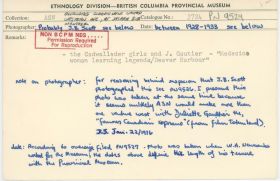 ETHNOLOGY DIVISION—BRITISH COLUMBIA PROVINCIAL MUSEUM
ASN
Catalogue No. 2774 PN 9529
Photographer Probably J.B. Scott see below Date between 1928-1933 see below
NON BCPM NEG.
Permission Required
For Reproduction
the Cadwallader girls and J. Gautier -
women learning legends/Beaver Harbour"
Note on photographer: for reasoning behind suspicion that J.B. Scott
photographed this see PN9526. I presume this
photo was taken at the same time because
it seems unlikely ASN would make more than
one winter visit with Juliette Gauthier the,
"famous Canadian soprano" (from John).
Date: According to coverage filed PN9527. Photo was taken when W.A. Newcombe
worked for the Museum, the dates above define the length of his tenure
with the Provincial Museum.